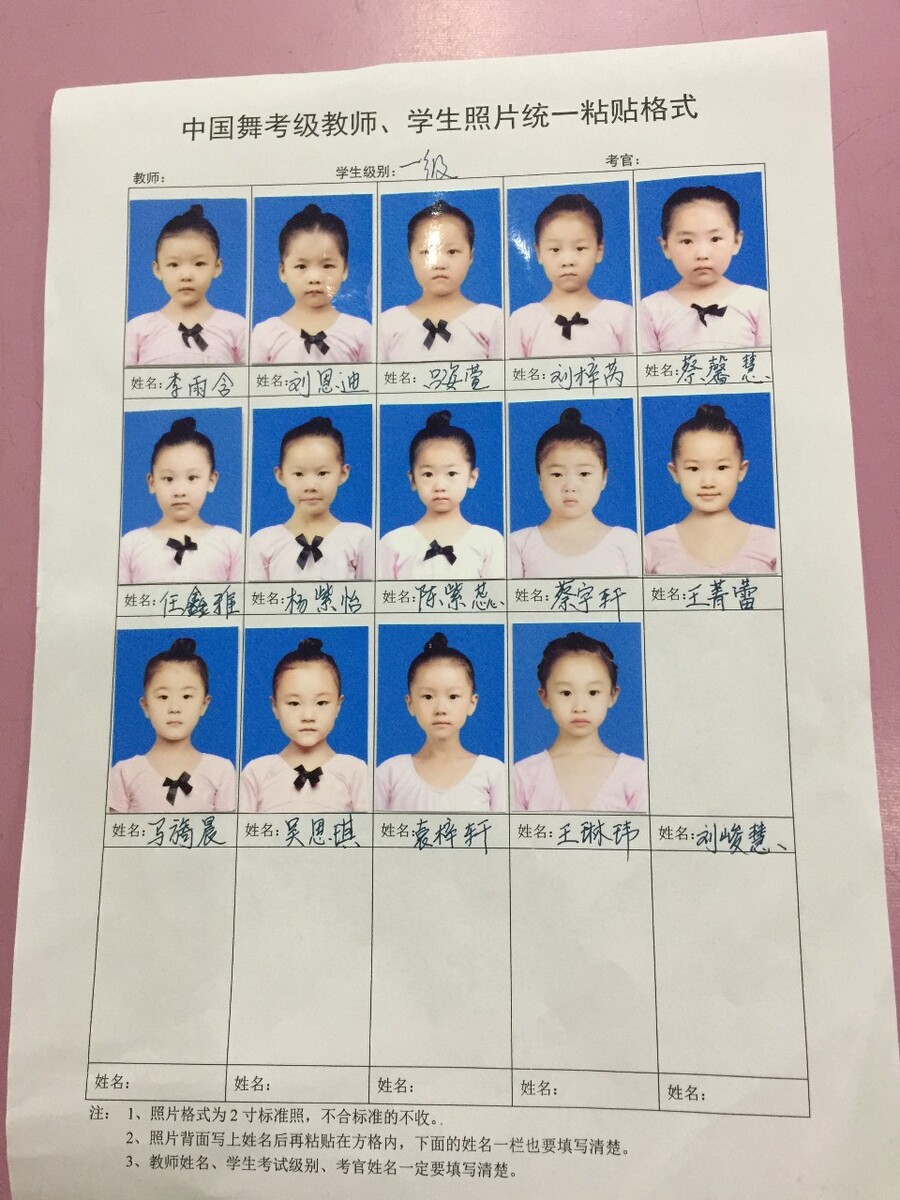 中国舞考级教师、学生照片统一粘贴格式
教师： 学生级别：一级 考官：
姓名：李雨含 姓名：刘恩迪 姓名：吕姿萱 姓名：刘梓芮 姓名：蔡馨慧
姓名：任鑫雅 姓名：杨紫怡 姓名：陈紫蕊 姓名：蔡宇轩 姓名：王菁蕾
姓名：马漪晨 姓名：吴思琪 姓名：袁梓轩 姓名：王琳玮 姓名：刘峻慧
姓名： 姓名： 姓名： 姓名： 姓名：
注： 1、照片格式为2寸标准照，不合标准的不收。
2、照片背面写上姓名后再粘贴在方格内，下面的姓名一栏也要填写清楚。
3、教师姓名、学生考试级别、考官姓名一定要填写清楚。